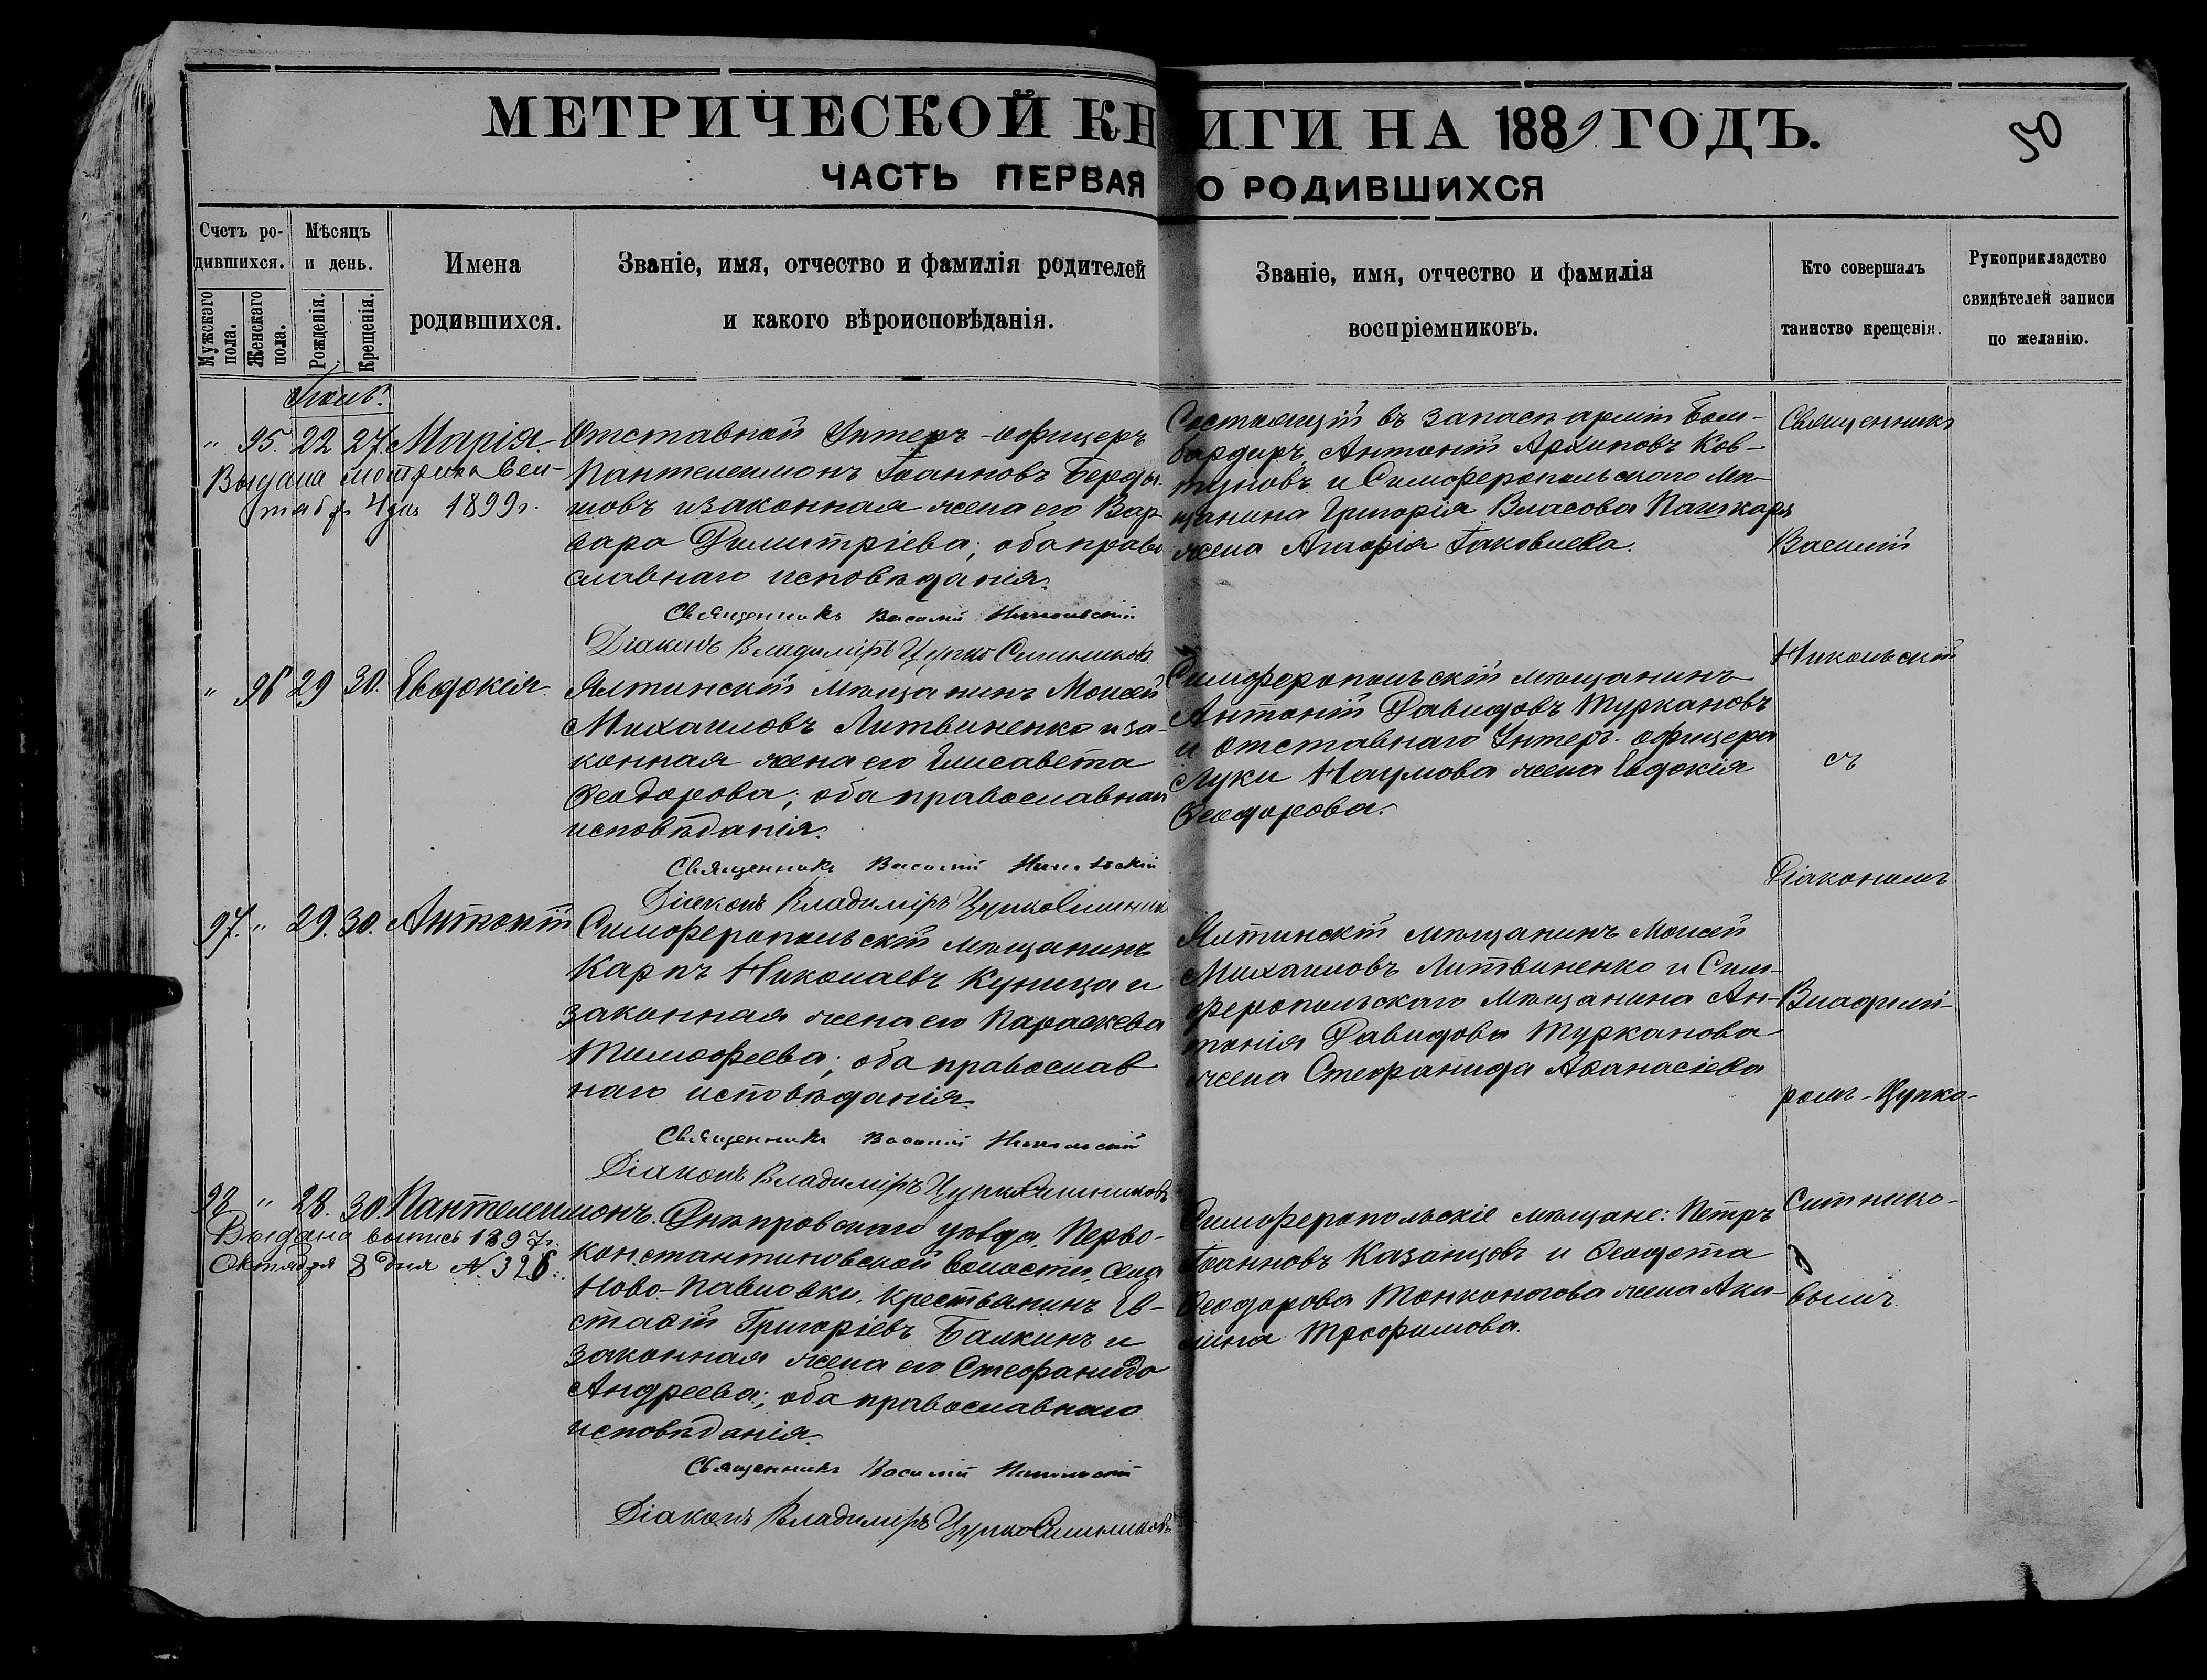 МЕТРИЧЕСКОЙ КНИГИ НА 1889 ГОДЪ.
50
ЧАСТЬ ПЕРВАЯ О РОДИВШИХСЯ
Счетъ ро-
дившихся.
Мужскаго пола.
Женскаго пола.
Мѣсяцъ
и день.
Рожденія.
Крещенія.
Имена
родившихся.
Званіе, имя, отчество и фамилія родителей
и какого вѣроисповѣданія.
Званіе, имя, отчество и фамилія
воспріемниковъ.
Кто совершалъ
таинство крещенія.
Рукоприкладство
свидѣтелей записи
по желанію.
" 95. 22 27. Марія.
Выдана метрика Сен-
тября 4 дня 1899 г.
Отставной Унтеръ-офицеръ
Пантелеимонъ Іоанновъ Берды-
шовъ и законная жена его Вар-
вара Димитріева; оба право
славнаго исповѣданія.
Священникъ Василій Никольскій
Діаконъ Владиміръ Цупко Ситниковъ
Состоящій въ запасѣ арміи Бом-
бардиръ Антоній Архиповъ Ков-
туновъ и Симферопольскаго Мѣ-
щанина Григорія Власова Пашкаря
жена Агафія Іаковлева.
" 96 29 30. Евдокія.
Ялтинскій мѣщанинъ Моисей
Михаиловъ Литвиненко и за-
конная жена его Елисавета
Ѳеодорова; оба православнаго
исповѣданія.
Священникъ Василій Никольскій
Діаконъ Владиміръ Цупко Ситников
Симферопольскій мѣщанинъ
Антоній Давидовъ Туркановъ
и отставнаго Унтеръ-офицера
Луки Наумова жена Евдокія
Ѳеодорова.
97. " 29. 30. Антоній
Симферопольскій мѣщанинъ
Карпъ Николаевъ Куница и
законная жена его Параскева
Тимофеева; оба православ
наго исповѣданія.
Священникъ Василій Никольскій
Діаконъ Владиміръ Цупко Ситниковъ
Ялтинскій мѣщанинъ Моисей
Михаиловъ Литвиненко и Сим-
феропольскаго мѣщанина Ан-
тонія Давидова Турканова
жена Стефанида Аѳанасіева
98 " 28. 30. Пантелеимонъ.
Выдана выпись 1897 г.
Октября 8 дня № 326.
Днѣпровскаго уѣзда, Перво-
константиновской волости, села
Ново-Павловки, крестьянинъ Ев-
стафій Григоріевъ Балкинъ и
законная жена его Стефанида
Андреева; оба православнаго
исповѣданія.
Священникъ Василій Никольскій
Діаконъ Владиміръ Цупко Ситниковъ
Симферопольскіе мѣщане: Петръ
Іоанновъ Казанцовъ и Ѳеодота
Ѳеодорова Тонконогова жена Аки-
лина Трофимова.
Священникъ
Василій
Никольскій
съ
Діакономъ
Владимі-
ромъ-Цупко-
Ситнико-
вымъ.